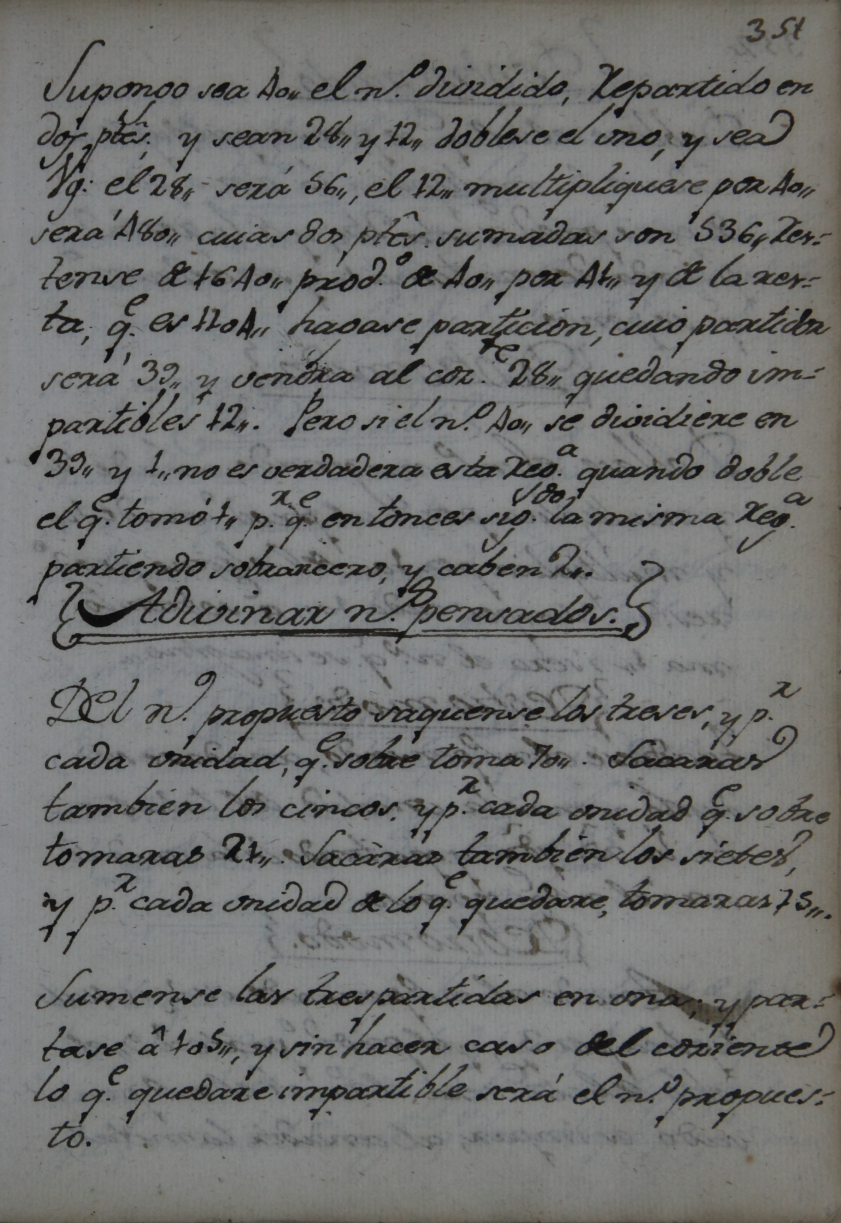 351
Supongo sea 40,, el n.º dividido, Repartido en
dos ptês. y sean 28,, y 12,, doblese el uno, y sea
Vg: el 28,, será 56,, el 12,, multipliquese por 40,,
será 480,, cuias dos ptês. sumadas son 536,, Res-
tense de 1640,, prod.º de 40,, por 41,, y de la res-
ta, q.e es 1104,, hagase partición, cuio partidor
será 39,, y vendra al cor.te 28,, quedando im-
partibles 12,,. Pero si el n.º 40,, se dividiere en
39,, y 1,, no es verdadera esta Reg.a quando doble
el q.e tomó 1,, p.r q.e entonces sig.do la misma Reg.a
partiendo sobrarcero, y caben 2,,.
Adivinar n.º pensados.
Del n.º propuesto saquense los treses, y p.r
cada unidad, q.e sobre toma 70,,. Sacaras
tambien los cincos, y p.r cada unidad q.e sobre
tomaras 21,,. Sacaras tambien los sietes,
y p.r cada unidad de lo q.e quedare, tomaras 15,,.
Sumense las tres partidas en una; y par-
tase â 105,, y sin hacer caso del coriente
lo q.e quedare impartible será el n.º propues-
to.